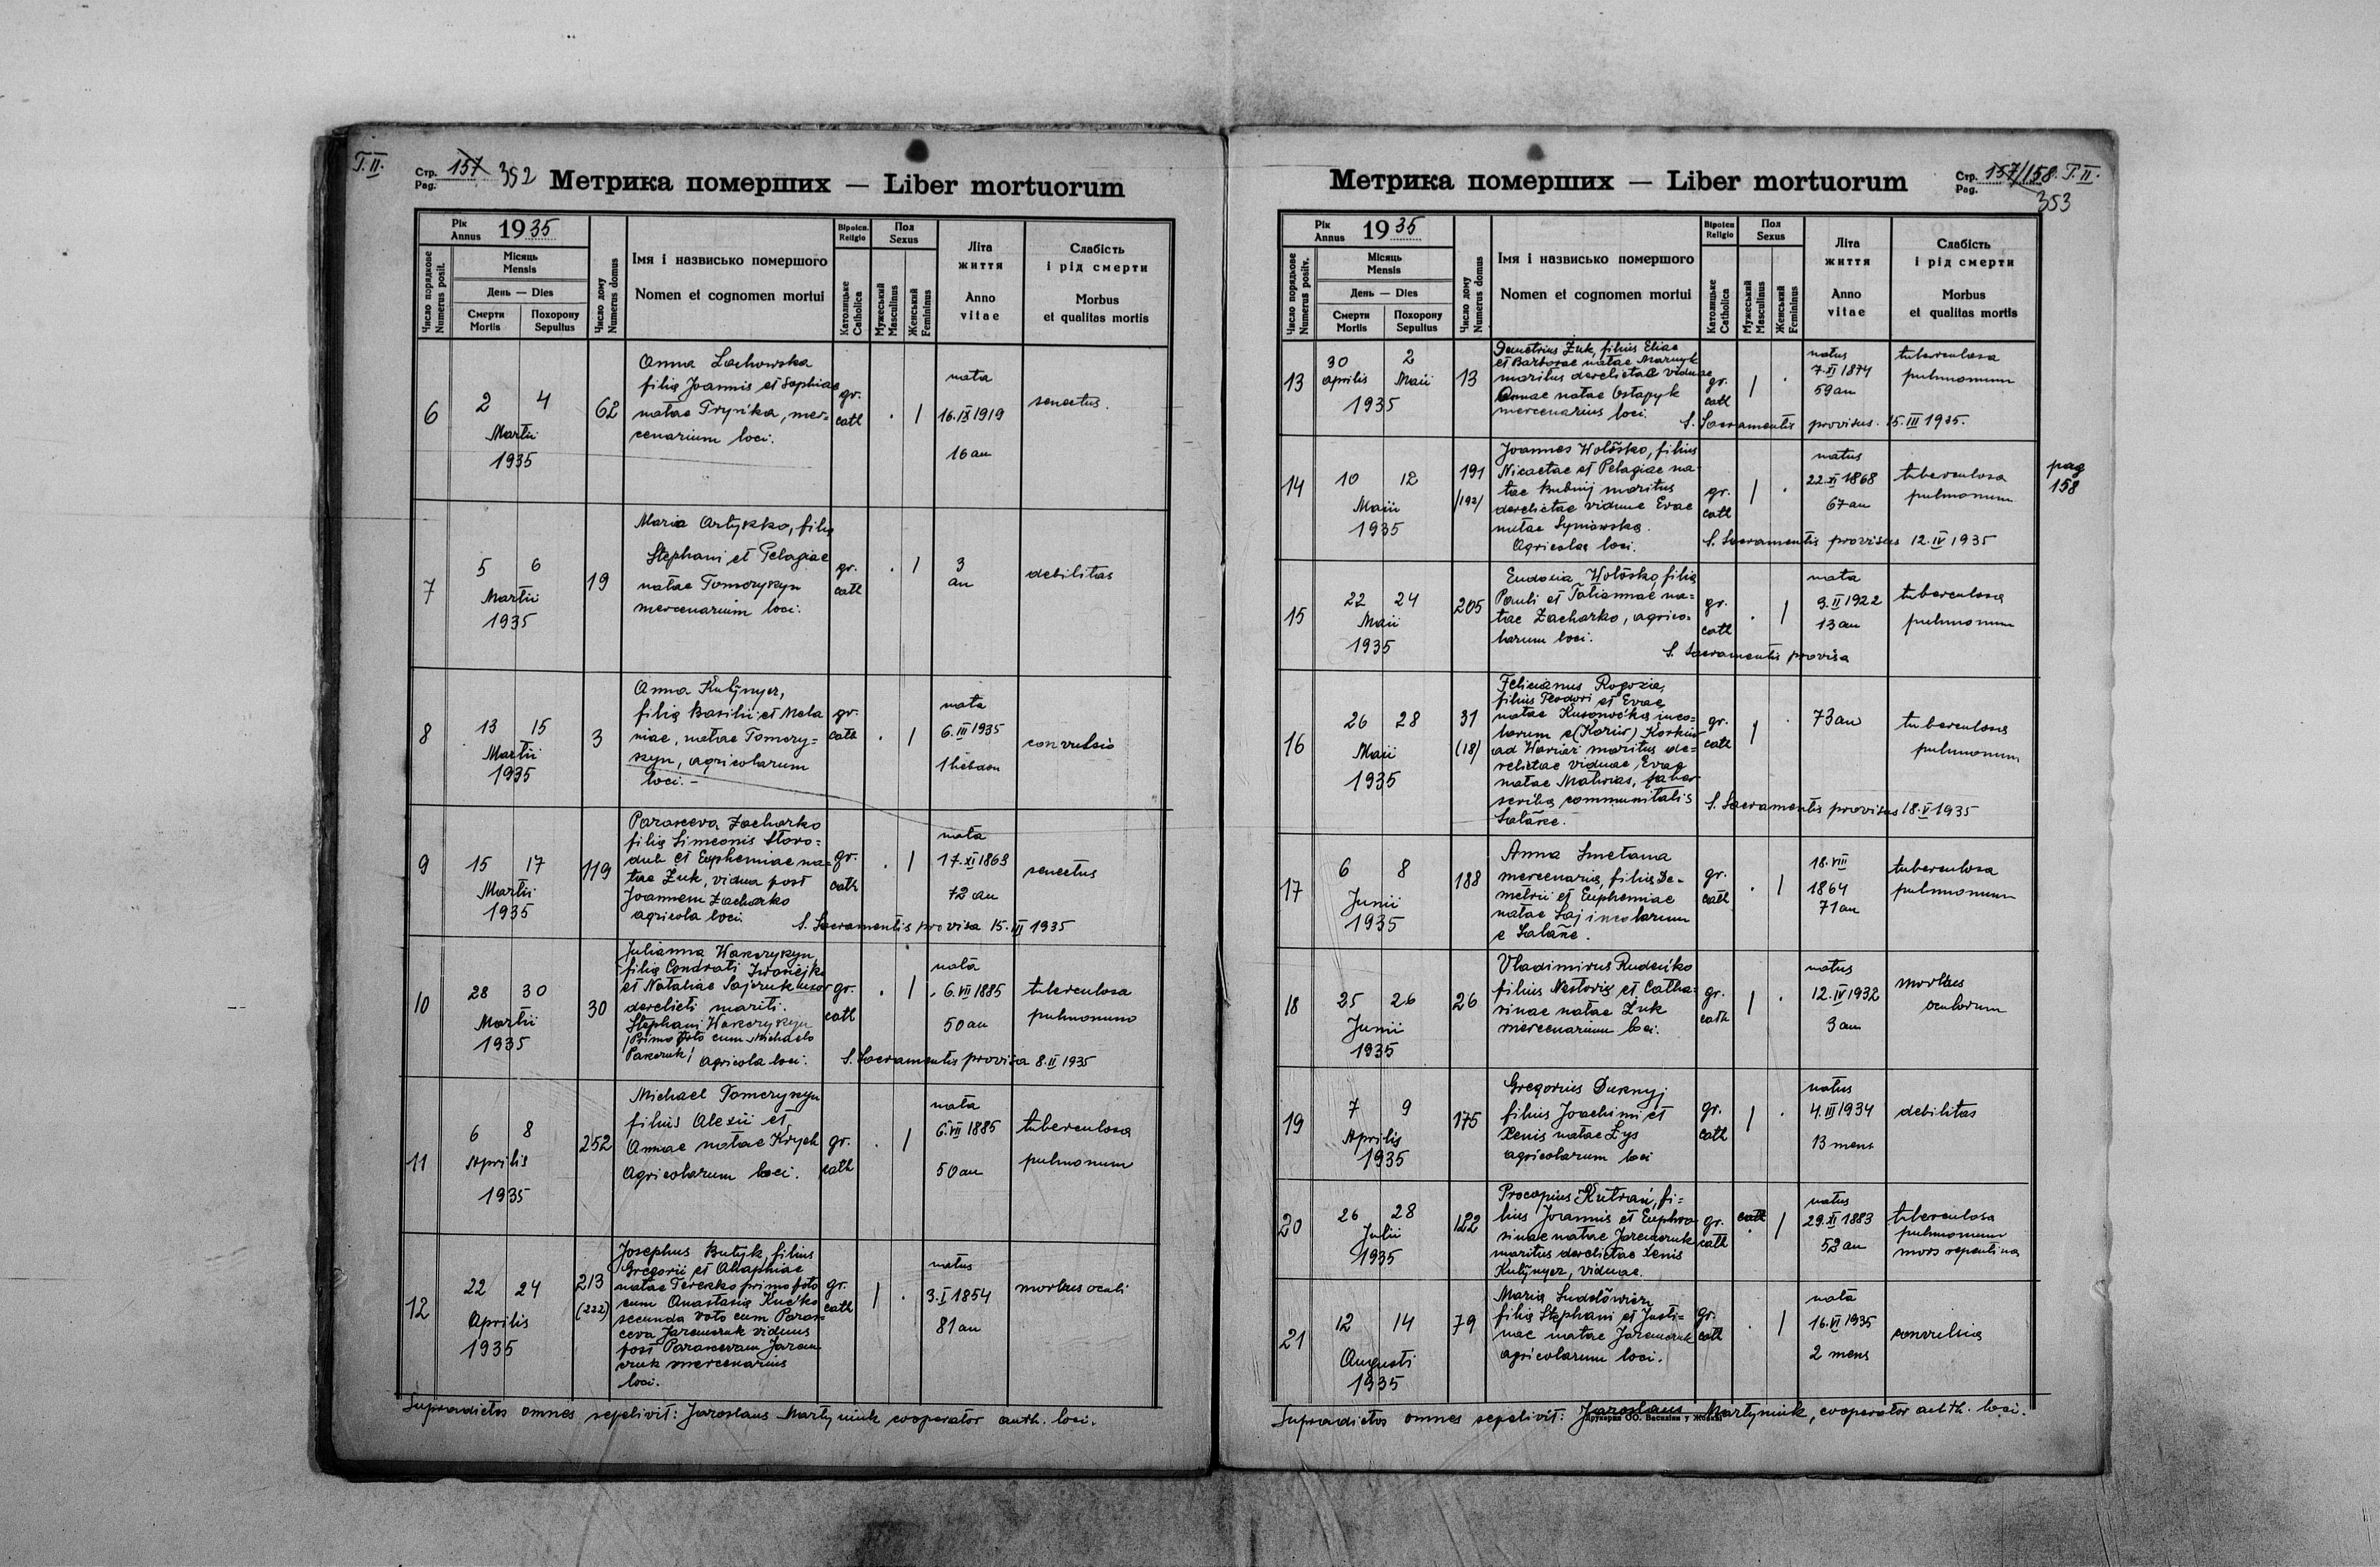 T. II.
Стр. Pag. 157 352
Метрика померших — Liber mortuorum
Рік Annus 1935
Число порядкове Numerus posit.
Місяць Mensis
День — Dies
Смерти Mortis
Похорону Sepultus
Число дому Numerus domus
Імя і назвисько помершого
Nomen et cognomen mortui
Віроісп. Religio
Католицьке Catholica
Пол Sexus
Мужеський Masculinus
Женський Femininus
Літа життя
Anno vitae
Слабість і рід смерти
Morbus et qualitas mortis
6
2 4
Martii
1935
62
Anna Lachowska
filia Joannis et Sophiae
natae Tryśka, mer-
cenarium loci.
gr.
cath
. /
nata
16.IX 1919
16 an
senectus.
7
5 6
Martii
1935
19
Maria Artyszko, filia
Stephani et Pelagiae
natae Tomczyszyn
mercenarium loci.
gr.
cath
. /
3
an
debilitas
8
13 15
Martii
1935
3
Anna Kutynyez,
filia Basilii et Mela
niae, natae Tomczy=
szyn, agricolarum
loci.-
gr.
cath
. /
nata
6.III 1935
1 hebdom
convulsio
9
15 17
Martii
1935
119
Parasceva Zacharko
filia Simeonis Staro=
dub et Euphemiae na=
tae Żuk, vidua post
Joannem Zacharko
agricola loci
gr.
cath
. /
nata
17.XI 1863
72 an
senectus
S. Sacramentis provisa 15.III 1935
10
28 30
Martii
1935
30
Julianna
filia Condrati
et Nataliae Sajczuk uxor
derelicti mariti
Stephani
/Primo voto cum Michaelo
agricola loci.
gr.
cath
. /
nata
6.VII 1885
50 an
tuberculosa
pulmonum
S. Sacramentis provisa 8.II 1935
11
6 8
Aprilis
1935
252
Michael Tomczyszyn
filius Alexii et
Annae natae Krych
Agricolarum loci.
gr.
cath
. /
nata
6.VII 1885
50 an
tuberculosa
pulmonum
12
22 24
Aprilis
1935
213
(222)
Josephus Butyk, filius
Gregorii et Ahaphiae
natae Tereszko primo voto
cum Anastasia Kućko
secunda voto cum Paras=
ceva Jaremczuk viduus
post Parascevam Jarem
czuk mercenarius
loci.
gr.
cath
/ .
natus
3.I 1854
81 an
morbus oculi
Supradictos omnes sepelivit: Jaroslaus Martyniuk cooperator auth. loci.
Метрика померших — Liber mortuorum
Стр. Pag. 157/158. T. II.
353
Рік Annus 1935
Число порядкове Numerus positv.
Місяць Mensis
День — Dies
Смерти Mortis
Похорону Sepultus
Число дому Numerus domus
Імя і назвисько помершого
Nomen et cognomen mortui
Віроісп. Religio
Католицьке Catholica
Пол Sexus
Мужеський Masculinus
Женський Femininus
Літа життя
Anno vitae
Слабість і рід смерти
Morbus et qualitas mortis
13
30 2
Aprilis Maii
1935
13
Demetrius Żuk, filius Eliae
et Barbarae natae Marnyk
maritus derelictae viduae
Annae natae Ostapyk
mercenarius loci.
gr.
cath
/ .
natus
7.XI 1874
59 an
tuberculosa
pulmonum
S. Sacramentis provisus. 15.III 1935.
14
10 12
Maii
1935
191
/192/
Joannes Wołosko, filius
Nicaetae et Pelagiae na
tae Bubnij maritus
derelictae viduae Evae
natae
Agricola loci.
gr.
cath
/ .
natus
22.XI 1868
67 an
tuberculosa
pulmonum
S. Sacramentis provisus 12.IV 1935
pag
158
15
22 24
Maii
1935
205
Eudocia Wołosko filia
Pauli et Tatiannae na=
tae Zacharko, agrico-
larum loci.
gr.
cath
. /
nata
9.II 1922
13 an
tuberculosa
pulmonum
S. Sacramentis provisa
16
26 28
Maii
1935
31
(18)
Felicianus Rogozia,
filius Teodori et Evae
natae inco=
larum e (Korów) Korków
ad maritus de=
relictae viduae Evae
natae
scriba communitatis
gr.
cath
/ .
73 an
tuberculosa
pulmonum
S. Sacramentis provisus 18.V 1935
17
6 8
Junii
1935
188
Anna Smetana
mercenaria, filia De-
metrii et Euphemiae
natae Saj incolarum
e
gr.
cath
. /
18.VIII
1864
71 an
tuberculosa
pulmonum
18
25 26
Junii
1935
26
Vladimirus Rudeńko
filius Nestoris et Catha-
rinae natae Żuk
mercenarium loci.
gr.
cath
/ .
natus
12.IV 1932
3 an
morbus
oculorum
19
7 9
Aprilis
1935
175
Gregorius Duknyj
filius Joachimi et
Xenis natae Łys
agricolarum loci
gr.
cath
/ .
natus
4.III 1934
13 mens
debilitas
20
26 28
Julii
1935
122
Procopius Kutrań, fi=
lius Joannis et Euphro
sinae natae Jaremczuk
maritus derelictae Xenis
Kutynyez, viduae.
gr.
cath
cath
. /
natus
29.XI 1883
52 an
tuberculosa
pulmonum
mors repentina
21
12 14
Augusti
1935
79
Maria
filia Stephani et Justi-
nae natae Jaremczuk
agricolarum loci.
gr.
cath
. /
nata
16.VI 1935
2 mens
convulsia
Supradictos omnes sepelivit: Jaroslaus Martyniuk, cooperator auth. loci.
Друкарня ОО. Василіян у Жовкві